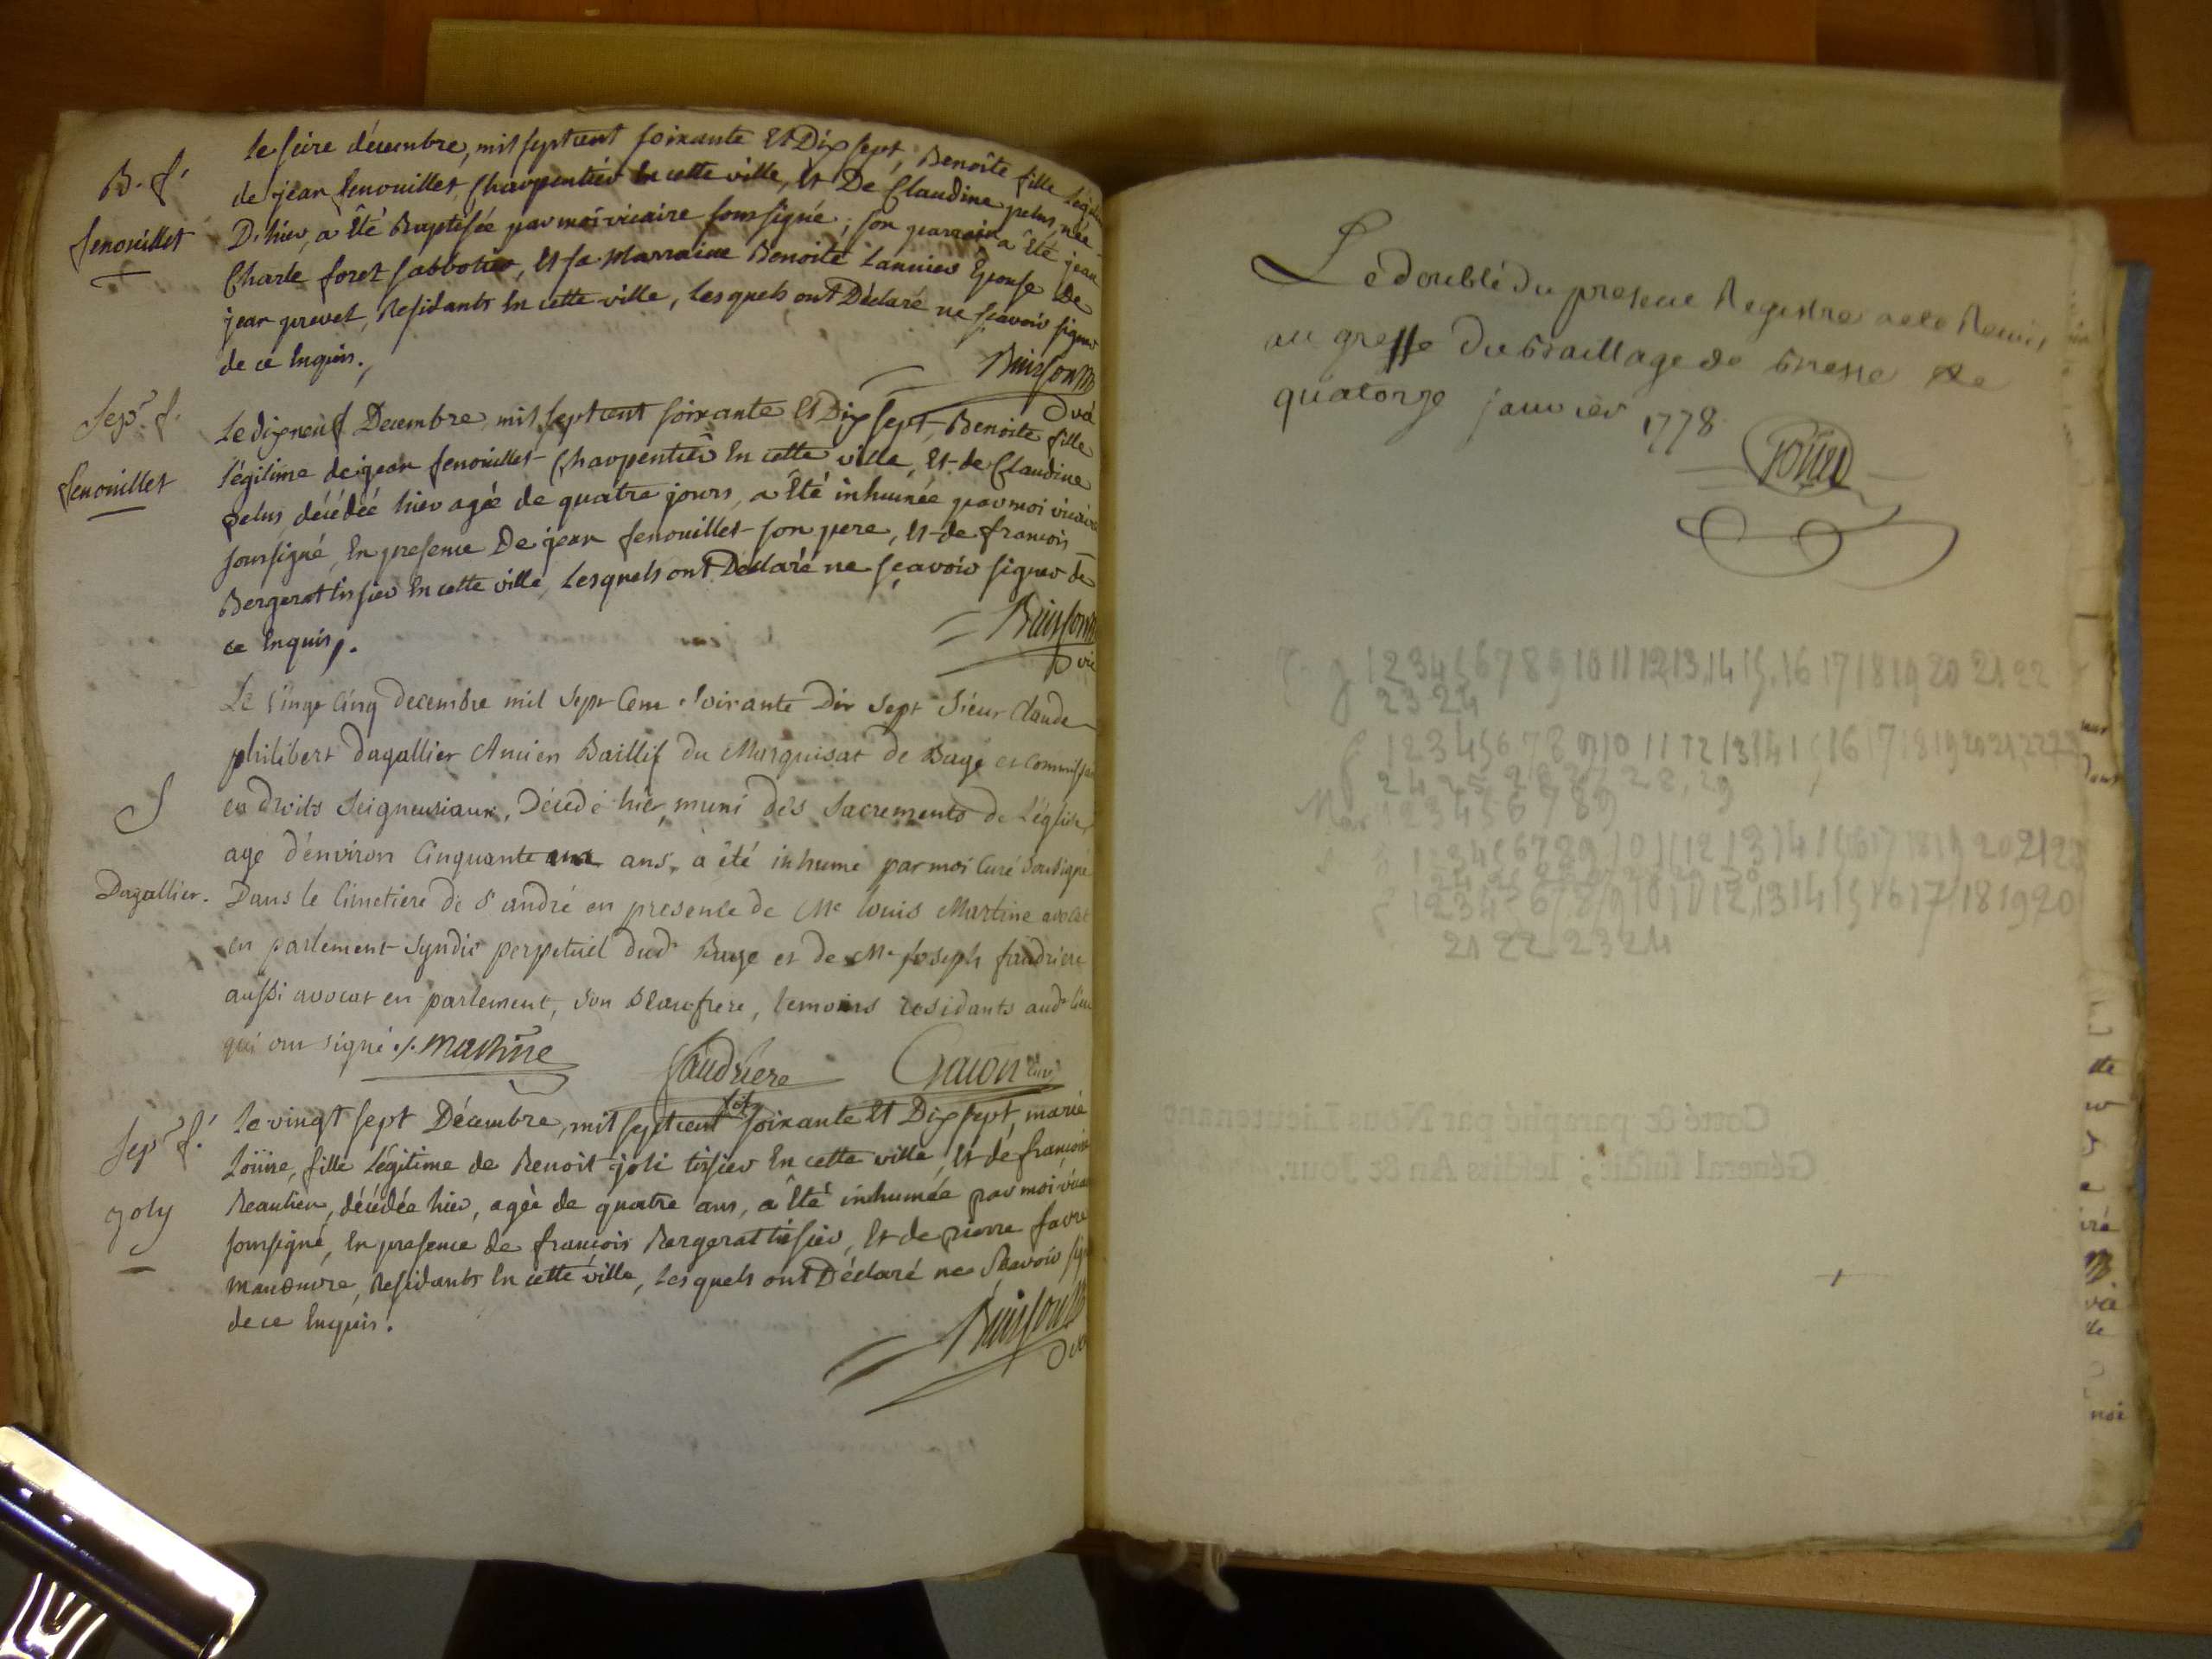 B. f.
fenouillet
le seize décembre, mil sept cent soixante Et Dix sept, Benoîte fille légitime
de jean fenouillet, Charpentier En cette ville, Et De Claudine pelus, née
D'hier, a Eté Baptisée par moi vicaire soussigné; son parrain a Eté jean
Charle foret sabbotier, Et sa Marraine Benoite Lannier Epouse De
jean prevet, Residants En cette ville, lesquels ont Déclaré ne sçavoir signer
de ce Enquis.
Buisson
Sep.re f.
fenouillet
Le dix neuf Decembre mil sept cent soixante Et Dix sept, Benoite fille
légitime de jean fenouillet Charpentier En cette ville, Et de Claudine
pelus, décédée hier agée de quatre jours, a Eté inhumée par moi vicaire
soussigné, En presence De jean fenouillet son pere, Et de francois
Bergerat tissier En cette ville, Lesquels ont Déclaré ne sçavoir signer de
ce Enquis.
Buisson
vic
S
Dagallier.
Le vingt cinq decembre mil sept Cent soixante Dix sept Sieur Claude
philibert Dagallier Ancien Baillif du Marquisat de Bagé et commissaire
en droits Seigneuriaux, Décédé hier, muni des Sacrements de L'église,
agé d'environ Cinquante ans, a été inhumé par moi Curé Soussigné
Dans le Cimetiere de St andré en presence de Me louis Martine avocat
en parlement Syndic perpetuel dud. Bage et de Me Joseph faudriere
aussi avocat en parlement, son Beaufrere, temoins residants aud. lieu
qui ont signé ./. Martine
faudriere Gacon curé
Sep.re f.
joly
le vingt sept Décembre, mil sept cent soixante Et Dix sept, marie
Loüise, fille Légitime de Benoit joli tissier En cette ville, Et de françoise
Beaulieu, décédée hier, agée de quatre ans, a Eté inhumée par moi vicaire
soussigné, En presence de françois Bergerat tissier, Et de pierre favre
manoeuvre, Residants En cette ville, Lesquels ont Déclaré ne sçavoir signer
de ce Enquis.
Buisson
Le double du present Registre a ete Remis
au greffe du Bailliage de Bresse le
quatorze janvier 1778
1 2 3 4 5 6 7 8 9 10 11 12 13 14 15 16 17 18 19 20 21 22
23 24
f 1 2 3 4 5 6 7 8 9 10 11 12 13 14 15 16 17 18 19 20 21 22 23
24 25 26 27 28 29
Mar 1 2 3 4 5 6 7 8 9
1 2 3 4 5 6 7 8 9 10 11 12 13 14 15 16 17 18 19 20 21 22
1 2 3 4 5 6 7 8 9 10 11 12 13 14 15 16 17 18 19 20
21 22 23 24
Cotté & paraphé par Nous Lieutenant
Général susdit; les dits An & Jour.